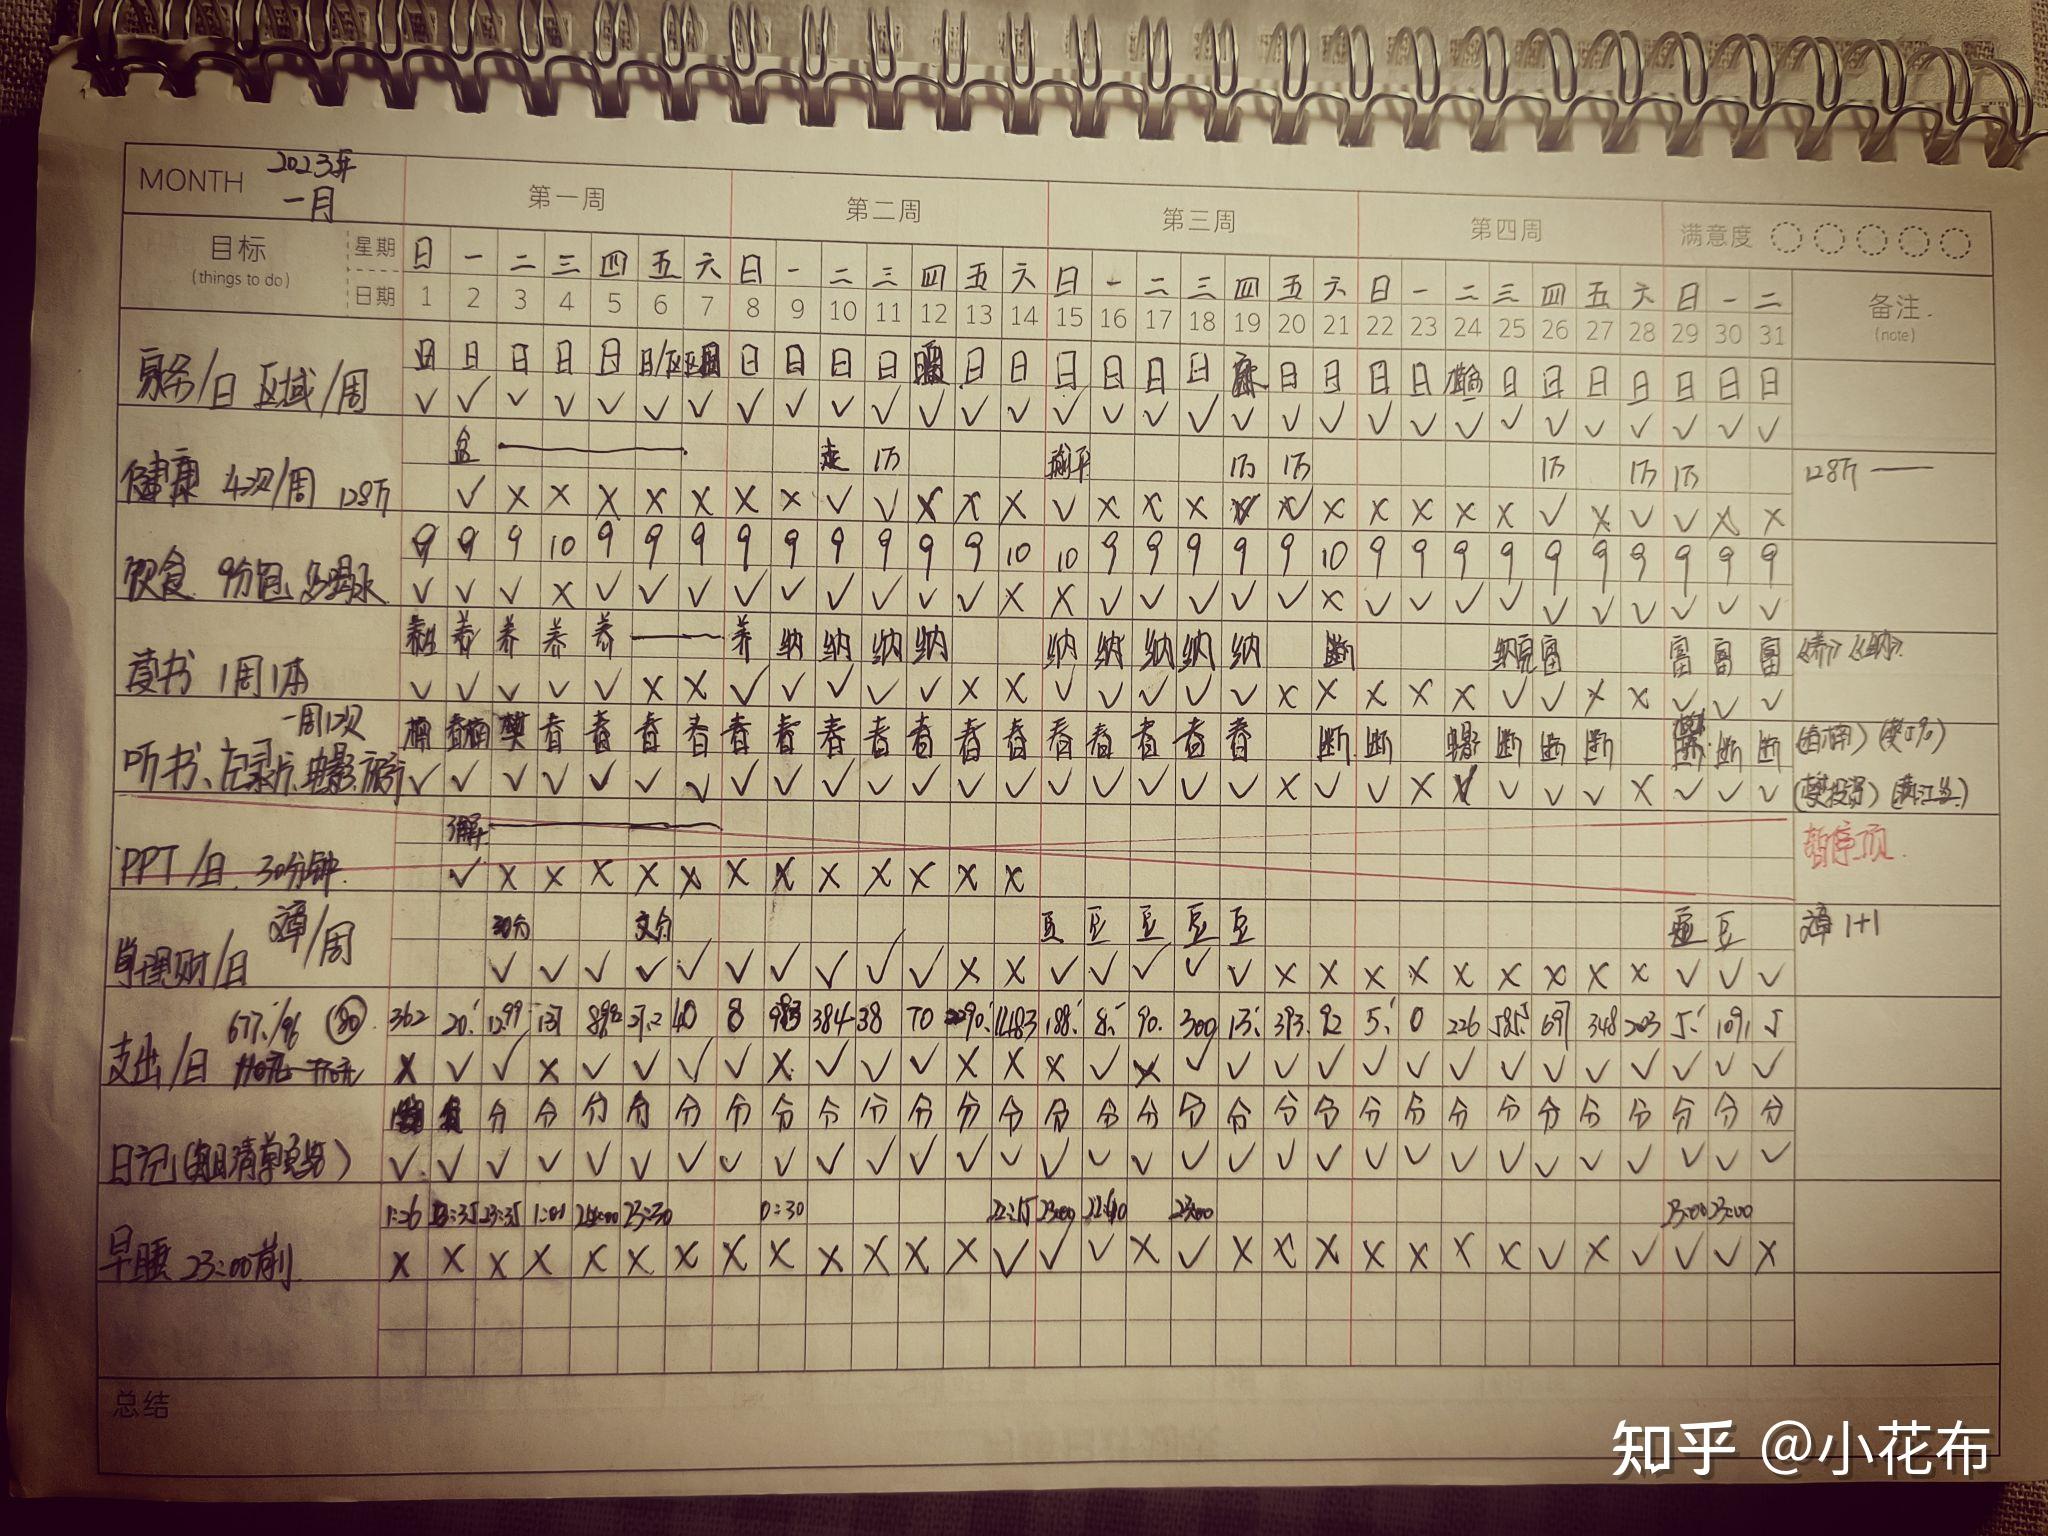 MONTH 2023年 一月 第一周 第二周 第三周 第四周 满意度
目标 (things to do) 星期 日 一 二 三 四 五 六 日 一 二 三 四 五 六 日 一 二 三 四 五 六 日 一 二 三 四 五 六 日 一 二 备注 (note)
日期 1 2 3 4 5 6 7 8 9 10 11 12 13 14 15 16 17 18 19 20 21 22 23 24 25 26 27 28 29 30 31
/日 区域/周 日 日 日 日 日 日/区 日 日 日 日 日 日 日 日 日 日 日 日 日 日 日 日 日 日 日 日 日
✓ ✓ ✓ ✓ ✓ ✓ ✓ ✓ ✓ ✓ ✓ ✓ ✓ ✓ ✓ ✓ ✓ ✓ ✓ ✓ ✓ ✓ ✓ ✓ ✓ ✓ ✓ ✓ ✓ ✓ ✓
健康 4次/周 128万 走 1万 1万 1万 1万 1万 1万 128万
✓ × × × × × × × ✓ ✓ × × × ✓ × × × × × × × × ✓ × ✓ ✓ × ×
饮食 9分饱、多喝水 9 9 9 10 9 9 9 9 9 9 9 9 9 10 10 9 9 9 9 9 10 9 9 9 9 9 9 9 9 9 9
✓ ✓ ✓ × ✓ ✓ ✓ ✓ ✓ ✓ ✓ ✓ ✓ × × ✓ ✓ ✓ ✓ ✓ × ✓ ✓ ✓ ✓ ✓ ✓ ✓ ✓ ✓ ✓
读书 1周1本 养 养 养 养 养 纳 纳 纳 纳 纳 纳 纳 纳 纳 断 纳 富 富 富 富 《养》《纳》
✓ ✓ ✓ ✓ ✓ × × ✓ ✓ ✓ ✓ ✓ × × ✓ ✓ ✓ ✓ ✓ × × × × × ✓ ✓ × × ✓ ✓ ✓
一周1次
听书、纪录片、电影、旅行 樊 春 春 春 春 春 春 春 春 春 春 春 春 春 春 春 断 断 电影 断 断 断 断 断
✓ ✓ ✓ ✓ ✓ ✓ ✓ ✓ ✓ ✓ ✓ ✓ ✓ ✓ ✓ ✓ ✓ ✓ ✓ × ✓ ✓ × ✓ ✓ ✓ × ✓ ✓ ✓
(樊投资) (满江红)
PPT/日 30分钟 暂停项
✓ × × × × × × × × × × × ×
学理财/日 文章/周 30分 豆 豆 豆 豆 豆 豆 文章 1+1
✓ ✓ ✓ ✓ ✓ ✓ ✓ ✓ ✓ ✓ × × ✓ ✓ ✓ ✓ ✓ × × × × × × × × × ✓ ✓ ✓
支出/日 80 362 40 8 384 38 70 90. 300 393. 92 0 226 348 203 5
× ✓ ✓ × ✓ ✓ ✓ ✓ × ✓ ✓ ✓ × × × ✓ × ✓ ✓ ✓ ✓ ✓ ✓ ✓ ✓ ✓ ✓ ✓ ✓ ✓ ✓
日记(每日清单总结) 分 分 分 分 分 分 分 分 分 分 分 分 分 分 分 分 分 分 分 分 分 分 分 分 分 分 分 分 分
✓ ✓ ✓ ✓ ✓ ✓ ✓ ✓ ✓ ✓ ✓ ✓ ✓ ✓ ✓ ✓ ✓ ✓ ✓ ✓ ✓ ✓ ✓ ✓ ✓ ✓ ✓ ✓ ✓ ✓ ✓
早睡 23:00前 1:26 23:35 1:00 23:30 0:30 22:15 23:00 23:00 23:00 23:00
× × × × × × × × × × × × × ✓ ✓ ✓ × ✓ × × × × × × × ✓ × ✓ ✓ ✓ ×
总结
知乎 @小花布